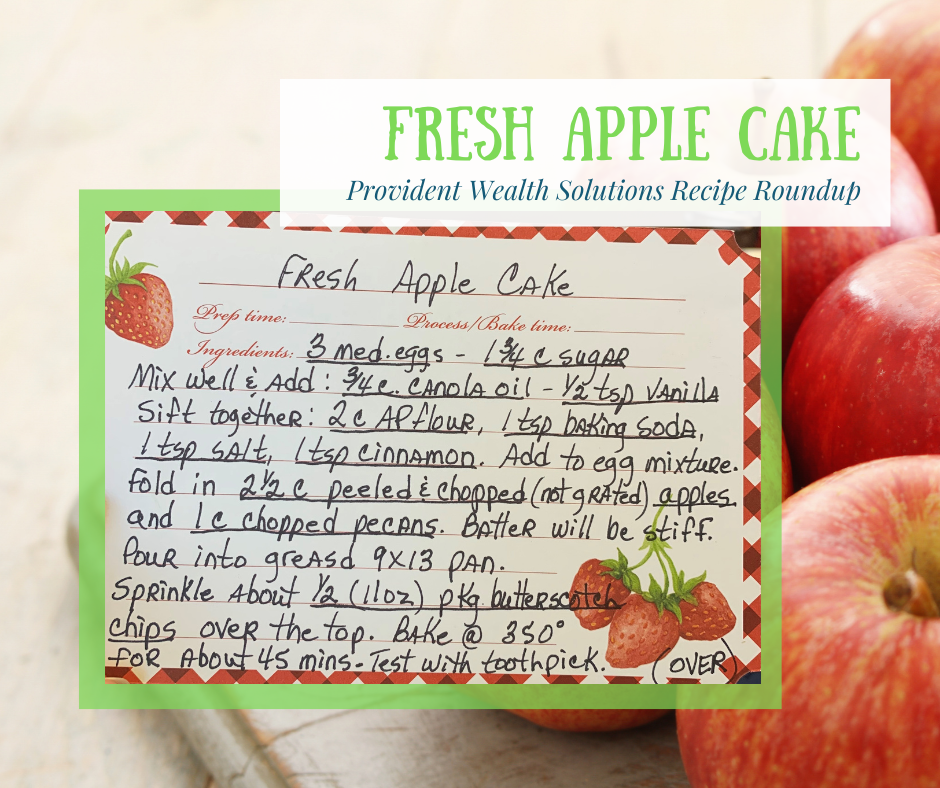 FRESH APPLE CAKE
Provident Wealth Solutions Recipe Roundup
Fresh Apple Cake
Prep time:
Process/Bake time:
Ingredients: 3 med. eggs - 1 3/4 c sugar
Mix well & Add: 3/4 c. canola oil - 1/2 tsp vanilla
Sift together: 2 c AP flour, 1 tsp baking soda,
1 tsp salt, 1 tsp cinnamon. Add to egg mixture.
Fold in 2 1/2 c peeled & chopped (not grated) apples
and 1 c chopped pecans. Batter will be stiff.
Pour into greasd 9x13 pan.
Sprinkle about 1/2 (11oz) pkg butterscotch
chips over the top. Bake @ 350°
for about 45 mins - Test with toothpick. (OVER)